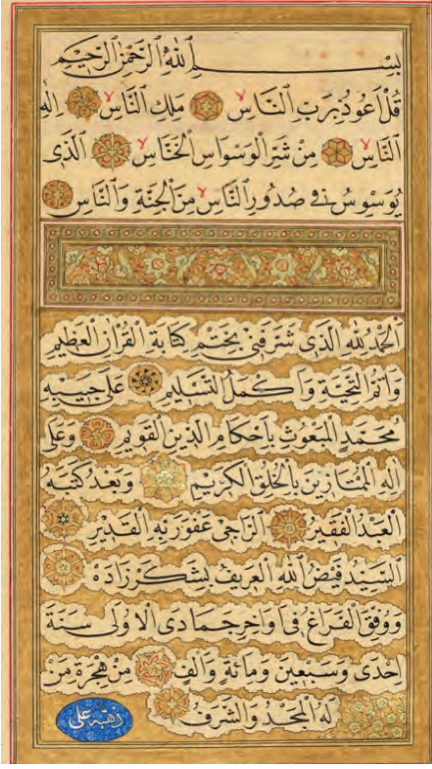 بِسْمِ اللّٰهِ الرَّحْمٰنِ الرَّحِيْمِ
قُلْ اَعُوْذُ بِرَبِّ النَّاسِ مَلِكِ النَّاسِ اِلٰهِ
النَّاسِ مِنْ شَرِّ الْوَسْوَاسِ الْخَنَّاسِ الَّذِى
يُوَسْوِسُ فِى صُدُوْرِ النَّاسِ مِنَ الْجِنَّةِ وَالنَّاسِ
اَلْحَمْدُ لِلّٰهِ الَّذِى شَرَّفَنِى بِخَتْمِ كِتَابَةِ الْقُرْاٰنِ الْعَظِيْمِ
وَاَتَمُّ التَّحِيَّةِ وَاَكْمَلُ التَّسْلِيْمِ عَلٰى حَبِيْبِهِ
مُحَمَّدٍ الْمَبْعُوْثِ بِاَحْكَامِ الدِّيْنِ الْقَوِيْمِ وَعَلٰى
اٰلِهِ الْمُمْتَازِيْنَ بِالْخُلُقِ الْكَرِيْمِ وَبَعْدُ كَتَبَهُ
الْعَبْدُ الْفَقِيْرُ الرَّاجِى عَفْوَ رَبِّهِ الْقَدِيْرِ
السَّيِّدُ فَيْضُ اللّٰهِ الْعَرِيْفُ بِشَكَرْزَادَه
وَوُفِّقَ الْفَرَاغُ فِى اَوَاخِرِ جُمَادَى الْاُوْلٰى سَنَةَ
اِحْدٰى وَسَبْعِيْنَ وَمِائَةٍ وَاَلْفٍ مِنْ هِجْرَةِ مَنْ
لَهُ الْمَجْدُ وَالشَّرَفُ
ذهبه على